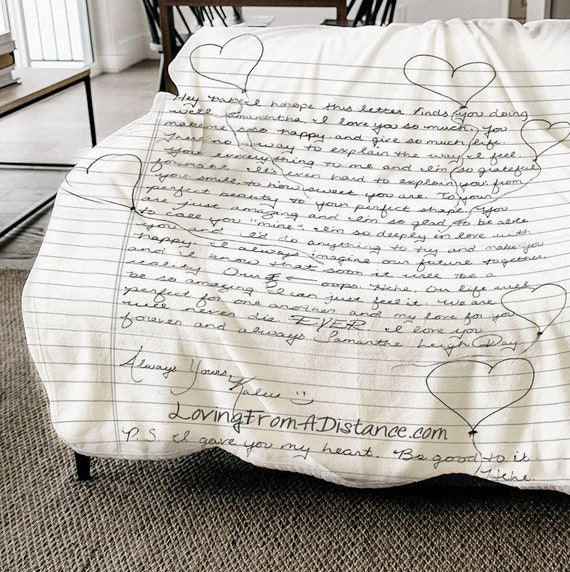 Hey babe I hope this letter finds you doing
well Samantha. I love you so much. You
make me so happy and give so much life.
There's no way to explain the way I feel.
You everything to me and I'm so grateful
for that. It's even hard to explain you from
your smile to how sweet you are. To your
perfect beauty to your perfect shape. You
are just amazing and I'm so glad to be able
to call you "mine". I'm so deeply in love with
you and I'd do anything to try and make you
happy. I always imagine our future together
and I know that soon it will be a
reality. Our oops. Hehe. Our life will
be so amazing I can just feel it. We are
perfect for one another and my love for you
will never die. EVER. I love you
forever and always Samantha Leigh Day
Always Yours,
LovingFromADistance.com
P.S. I gave you my heart. Be good to it.
Hehe.